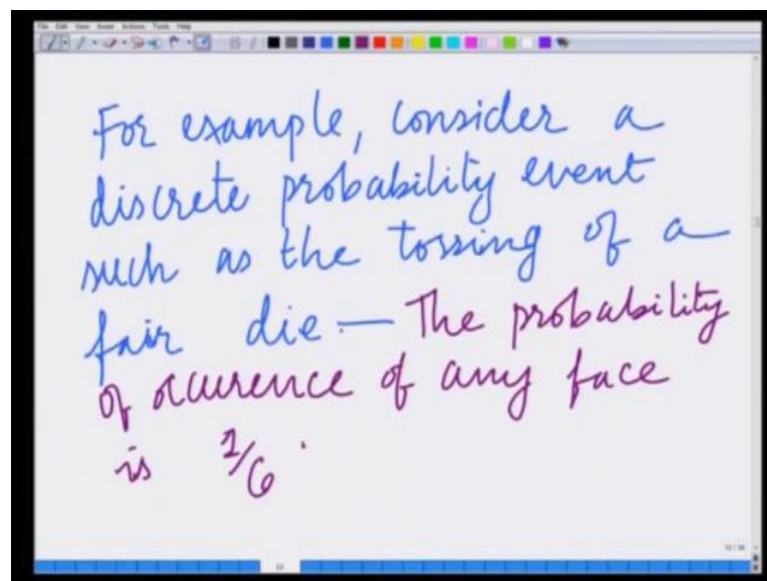 File Edit View Insert Actions Tools Help
For example, consider a
discrete probability event
such as the tossing of a
fair die — The probability
of occurence of any face
is 1/6.